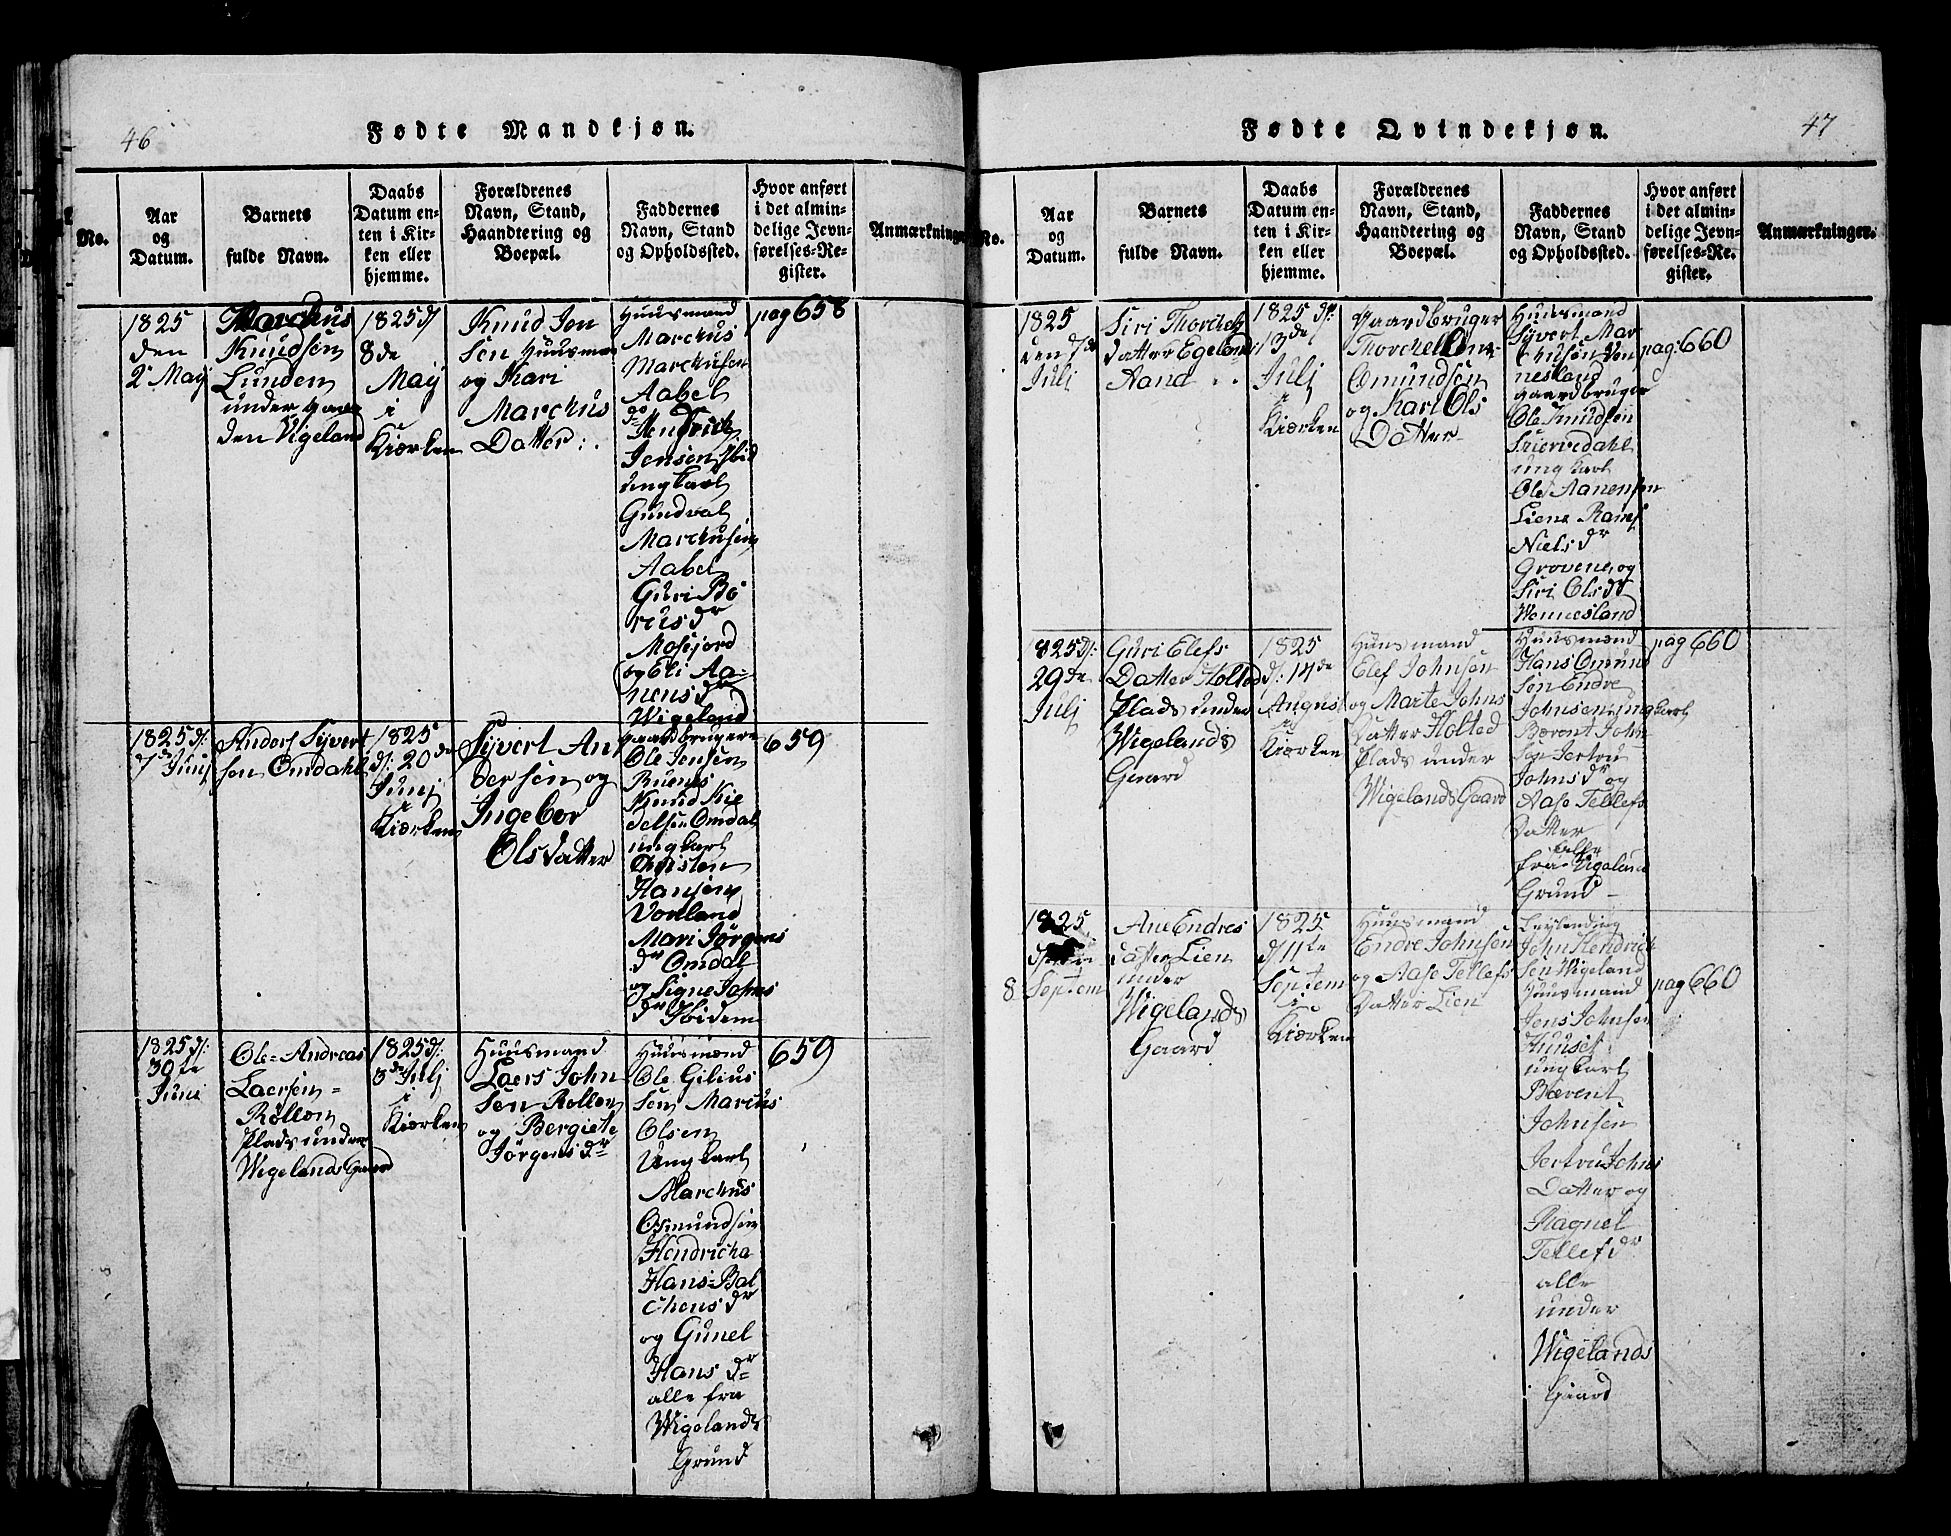 46
Fødte Mandkjøn.
No.
Aar
og
Datum.
Barnets
fulde Navn.
Daabs
Datum en-
ten i Kir-
ken eller
hjemme.
Forældrenes
Navn, Stand,
Haandtering og
Boepæl.
Faddernes
Navn, Stand
og Opholdssted.
Hvor anført
i det almin-
delige Jevn-
førelses-Re-
gister.
Anmærkninger
1825
den
2 May
Marckus
Knudsen
Lunden
under gaar
den Vigeland
1825 d/
8de
May
i
Kiørken
Knud Jon
Sen Huusman
og Kari
Marckus
Datter
Huusmænd
Marckus
Marckusen
Aabel
do
Hendrich
Jensen Ibid
ungkarl
Gundval
Marckusen
Aabel
Guri Bo
rus dr
Mosfjord
og Eli Aa-
nens dr
Wigeland
pag 658
1825 d/:
7de Junj
Anders Syvert
sen Omdahl
1825
d/: 20 de
Junj
i
Kiørken
Syvert An
dersen og
Ingebor
Olsdatter
gaardbrugere
Ole Jensen
Ruenes
Knud Kie
delsen Omdal
ungkarl
Christen
Hansen
Vonland
Mari Jørgens
dr Omdal
og Signe Johns
dr Ibidem
659
1825 d/:
30te
Juni
Ole Andreas
Laersen
Røllon
Plads under
Wigelands Gaard
1825 d/:
3de Julj
i
Kiørken
Huusmand
Laers John
sen Rollon
og Bergiete
Jørgens dr
Huusmænd
Ole Gilius
Sen Marcus
Olsen
Ungkarl
Marckus
Osmundsen
Hendricha
Hans Bal
chens dr
og Gunel
Hans dr
alle fra
Wigelands
Grund
659
47
Fødte Qvindekjøn.
No.
Aar
og
Datum.
Barnets
fulde Navn.
Daabs
Datum en-
ten i Kir-
ken eller
hjemme.
Forældrenes
Navn, Stand,
Haandtering og
Boepæl.
Faddernes
Navn, Stand
og Opholdssted.
Hvor anført
i det almin-
delige Jevn-
førelses-Re-
gister.
Anmærkninger.
1825
den 7de
Julj
Siri Thorchels
datter Egelands
Aand
1825 d/:
13de
Julj
i
Kiørken
Gaardbruger
Thorchel
Omundsen
og Kari Ols
Datter
Huusmand
Syvert Mar
chusen Von
nesland
gaardbruger
Ole Knudsen
ungkarl
Ole Aanensen
Liene
Niels dr
Grovene og
Siri Ols dr
Wonnesland
pag: 660
1825 d/:
29de
Julj
Guri Elefs
Datter Holted
Plads under
Wigelands
Gaard
1825
d/: 14de
August
i
Kiørken
Huusmand
Elef Johnsen
og Marte Johns
Datter Holted
Plads under
Wigelands Gaard
Huusmænd
Hans Omund
Sen Endre
Johnsen ungkarl
Bærent John
Sen Jertru
Johns dr og
Aase Tellefs
Datter
alle
fra Vigeland
Grund
pag 660
1825
8
Septem
Ane Endres
datter Lien
under
Wigelands
Gaard
1825
d/ 11te
Septem
i
Kiørken
Huusmand
Endre Johnsen
og Aase Tellefs
Datter Lien
Leylending
John Hendrich
Sen Wigeland
Huusmand
Jens Johnsen
Huuset
ungkarl
Bærent
Johnsen
Jertru Johns
Datter og
Ragnel
Tellefs dr
alle
under
Wigelands
Gaard
pag 660